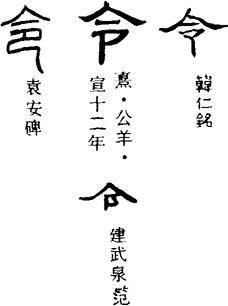 令
韓仁銘
令
熹·公羊·
宣十二年
令
建武泉范
令
袁安碑